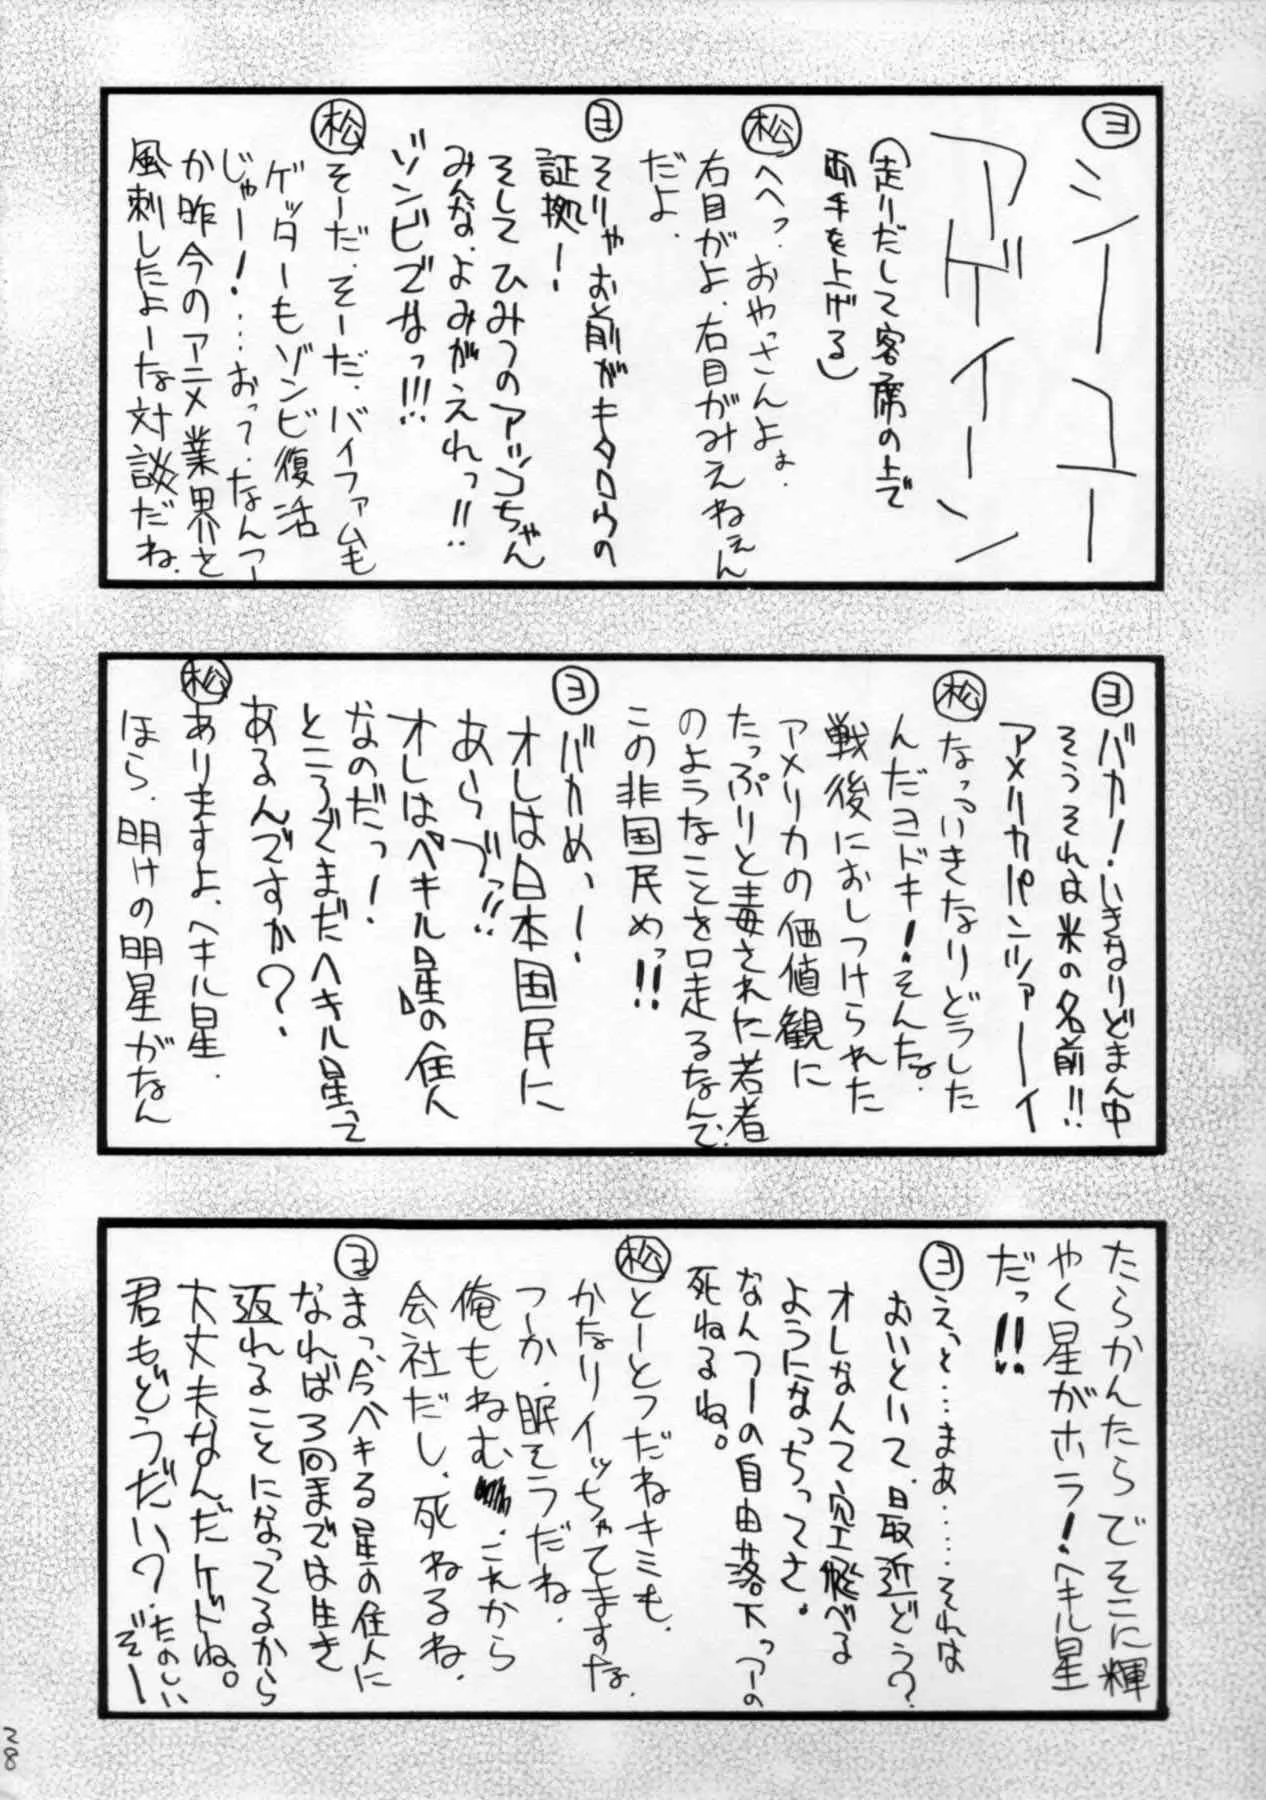 ヨ シーユー
アゲイーン
(走りだして客席の上で
両手を上げる)
松 へへっ、おやっさんよぉ、
右目がよ、右目がみえねぇん
だよ、
ヨ そりゃお前がキタロウの
証拠ー!
そして ひみつのアッコちゃん
みんな、よみがえれっ!!
ゾンビでなっ!!!
松 そーだ、そーだ、バイファムも
ゲッターもゾンビ復活
じゃー!……おって、なんつー
か昨今のアニメ業界を
風刺したよーな対談だね、
ヨ バカ!いきなりどまん中
そうそれは米の名前!!
アメリカパンツァーイ
松 なっ、いきなりどうした
んだヨドキ!そんな、
戦後におしつけられた
アメリカの価値観に
たっぷりと毒された若者
のようなことを口走るなんて、
この非国民めっ!!
ヨ バカめ、!
オレは日本国民に
あらブっ!!
オレは『ペキル星』の住人
なのだっ!
ところでまだヘキル星って
あるんですか?
松 ありますよ、ヘキル星、
ほら、明けの明星がなん
たらかんたらでそこに輝
やく星がホラ!ヘキル星
だっ!!
ヨ えっと…まあ……それは
おいといて、最近どう?
オレなんて空飛べる
ようになっちってさ。
なんつーの自由落下っつーの
死ねるね。
松 とーとつだねキミも、
かなりイッちゃてますな、
つーか、眠そうだね、
俺もねむ、これから
会社だし、死ねるね、
ヨ まっ、今ペキる星の住人に
なれば3回までは生き
返れることになってるから
大丈夫なんだケドね。
君もどうだい?、たのしい
ぞー
28